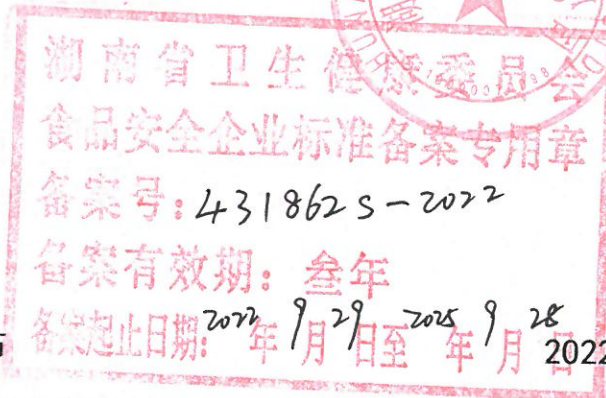 湖南省卫生健康委员会
食品安全企业标准备案专用章
备案号:431862S-2022
备案有效期:叁年
备案起止日期:2022年9月29日至2025年9月28日
2022